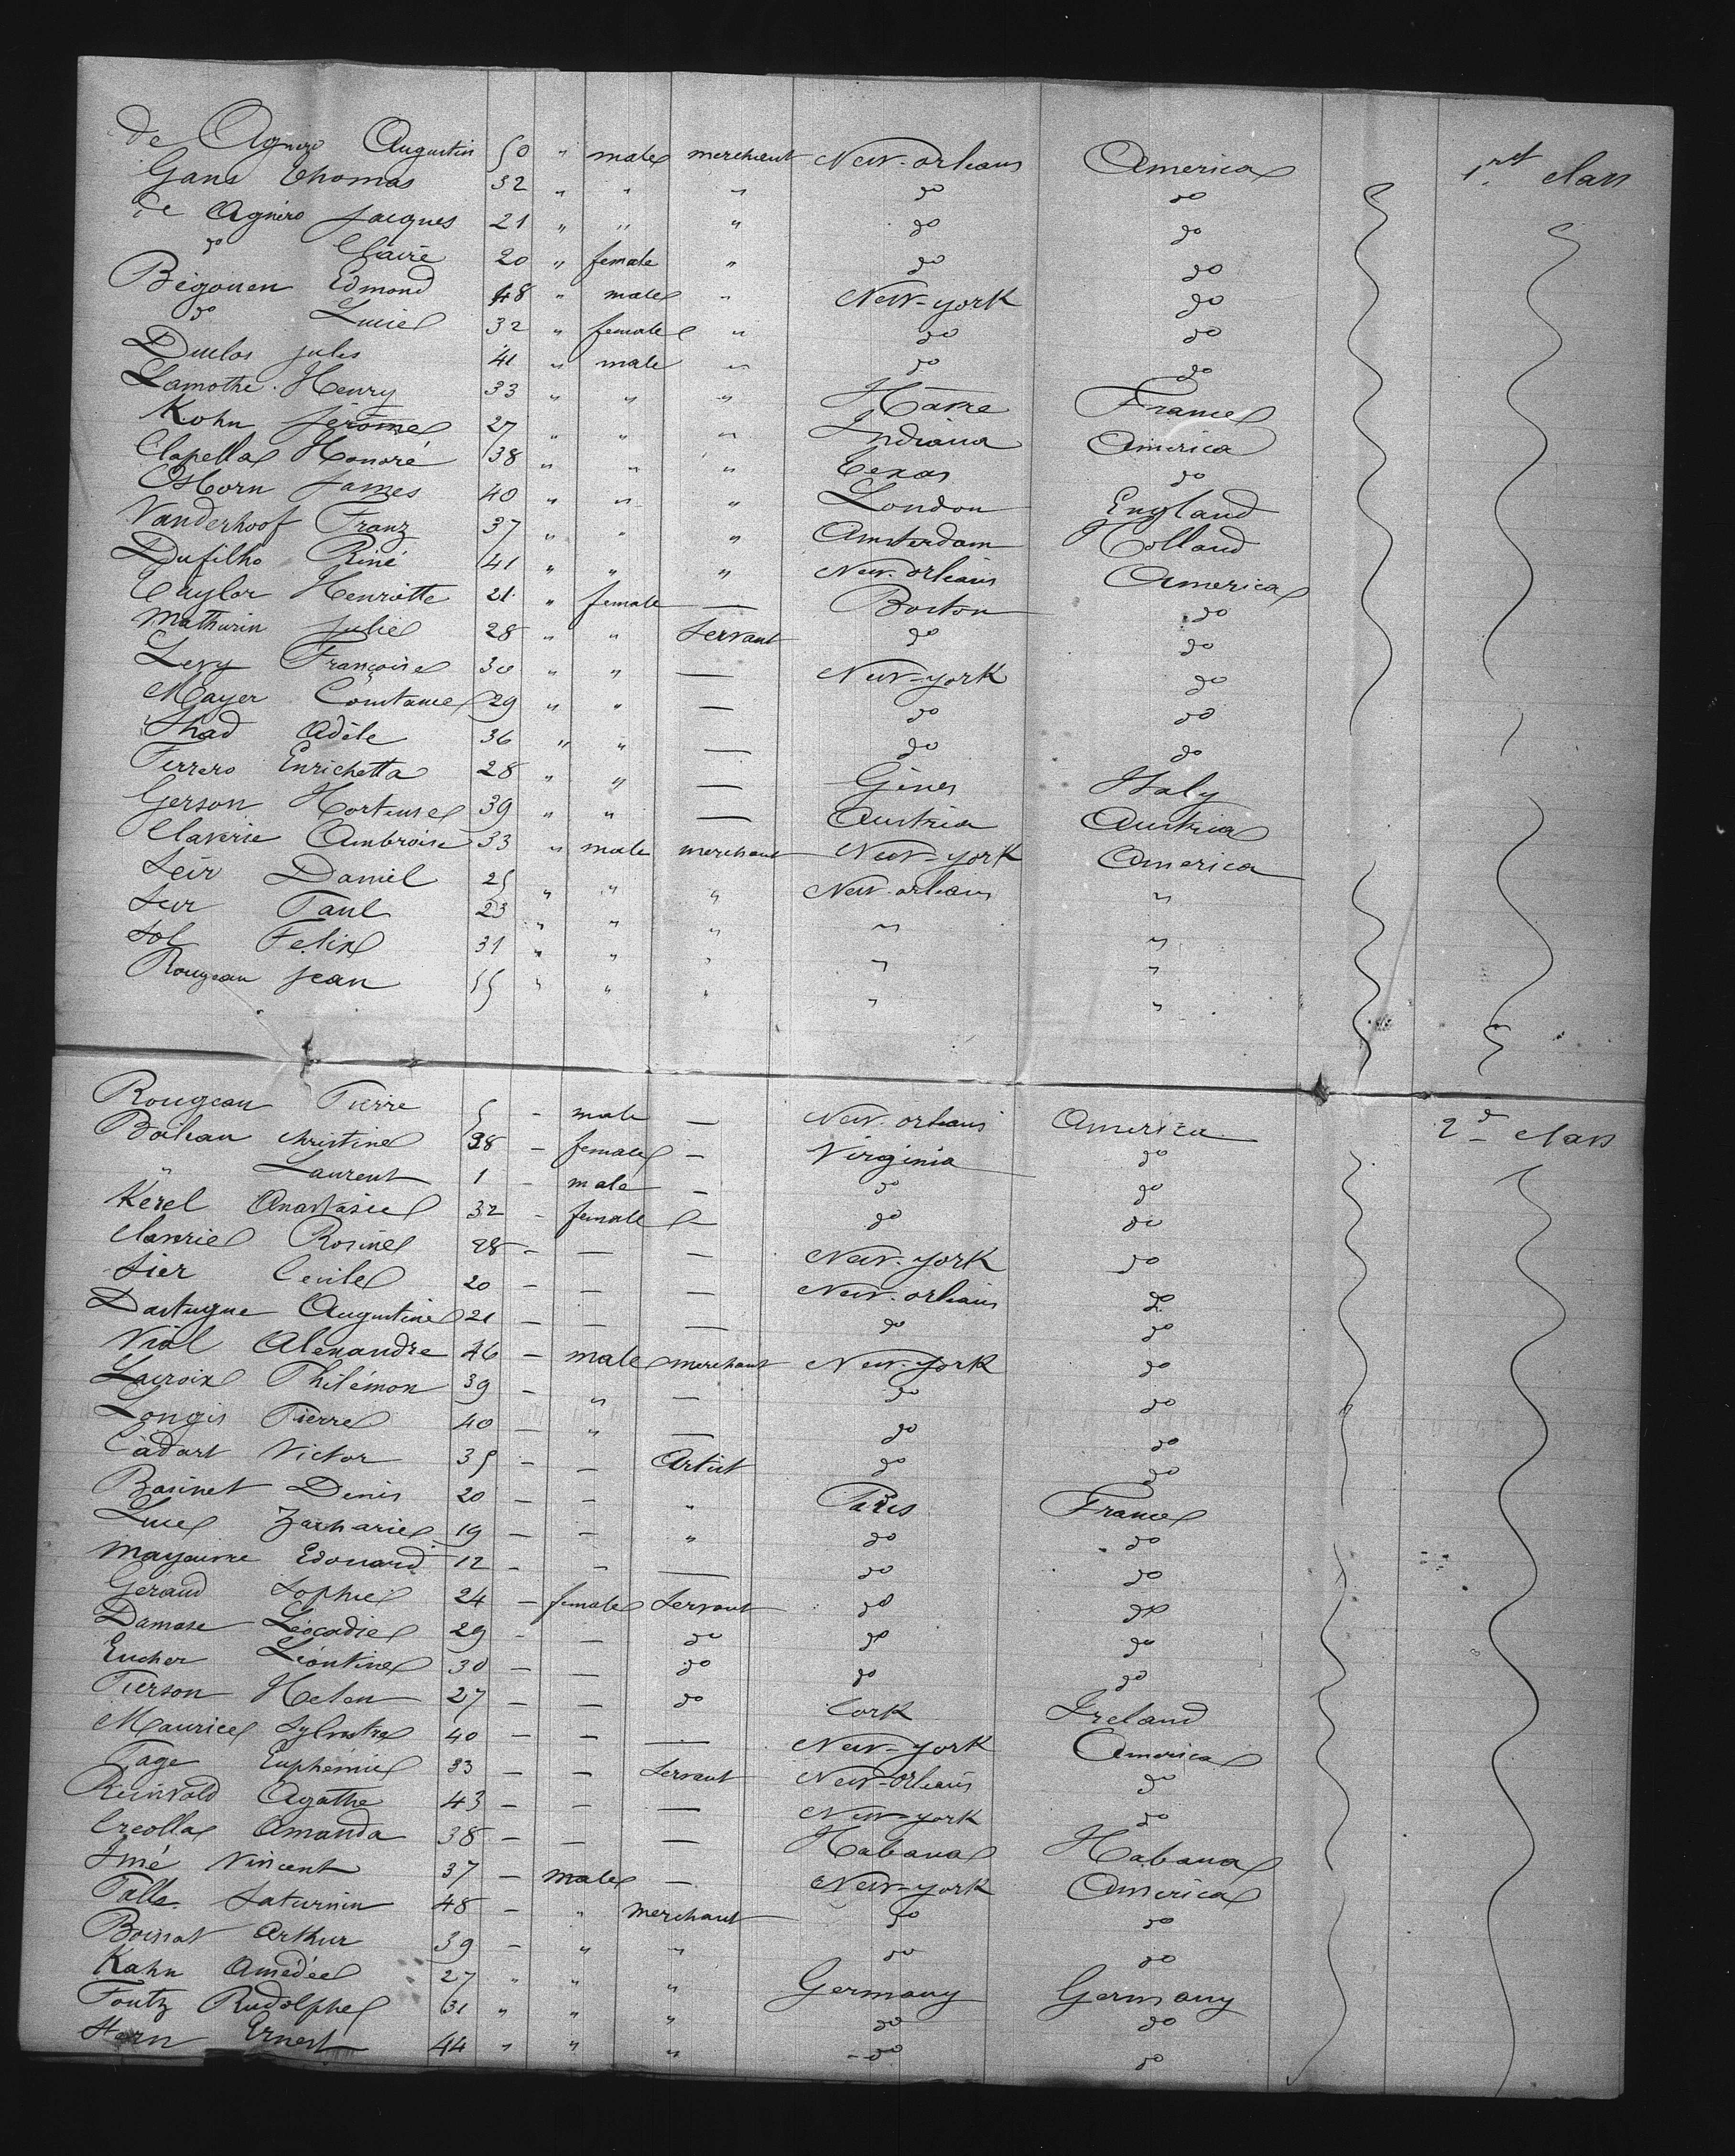 de Agnero Augustin 50 " male merchant New-orleans America 1rst class
Gans Thomas 32 " " " do do
de Agnero Jacques 21 " " " do do
do Claire 20 " female " do do
Bégouen Edmond 48 " male " New-york do
do Lucie 32 " female " do do
Duclos Jules 41 " male " do do
Lamothe Henry 33 " " " Havre France
Kohn Jérôme 27 " " " Indiana America
Clapella Honoré 38 " " " Texas do
Osborn James 40 " " " London England
Vanderhoof Franz 37 " " " Amsterdam Holland
Dufilho Réné 41 " " " New-orleans America
Taylor Henriette 21 " female — Boston do
Mathurin Julie 28 " " Servant do do
Levy Françoise 30 " " — New-york do
Mayer Constance 29 " " — do do
Shad Adèle 36 " " — do do
Ferrero Enrichetta 28 " " — Gènes Italy
Gerson Hortense 39 " " — Austria Austria
Claverie Ambroise 33 " male merchant New-york America
Seir Daniel 25 " " " New-orleans "
Paul 23 " " " " "
Sol Felix 31 " " " " "
Rougeau Jean 55 " " " " "
Rougeau Pierre 5 - male — New-orleans America 2d class
Boileau Christine 28 - female - Virginia do
" Laurent 1 - male - do do
Kérel Anastasie 32 - female - do do
Claverie Rosine 28 - — — New-york do
Sier Cecile 20 - — — New-orleans do
Dartugue Augustine 21 — — — do do
Vial Alexandre 46 - male merchant New-york do
Lacroix Philémon 39 - " — do do
Longis Pierre 40 — " — do do
Cadart Victor 35 - — Artist do do
Basinet Denis 20 — - " Paris France
Luce Zacharie 19 — - " do do
Edouard 12 - - — do do
Geraud Sophie 24 - female Servant do do
Damase Léocadie 29 - — do do do
Eucher Léontine 30 — — do do do
Pierson Helen 27 — — do Cork Ireland
Maurice Sylvestre 40 — — — New-york America
Page Euphémie 33 — — Servant New-Orleans do
Reinvald Agathe 43 — - — New-york do
Creolla Amanda 38 - — — Habana Habana
Imé Vincent 37 - male — New-york America
Falle Saturnin 48 - " merchant do do
Boissat Arthur 39 - " " do do
Kahn Amédée 27 " " " Germany Germany
Foutz Rudolphe 31 " " " do do
Stern Ernest 44 " " " do do